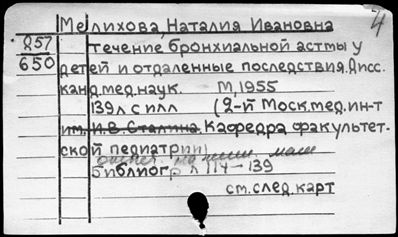 Мелихова, Наталия Ивановна 4
857 Течение бронхиальной астмы у
650 детей и отдаленные последствия. Дисс.
канд. мед. наук. М, 1955
139 л с илл (2-й Моск. мед. ин-т
им. И.В. Сталина. Кафедра факультет-
ской педиатрии)
библиогр л 114-139
см. след. карт